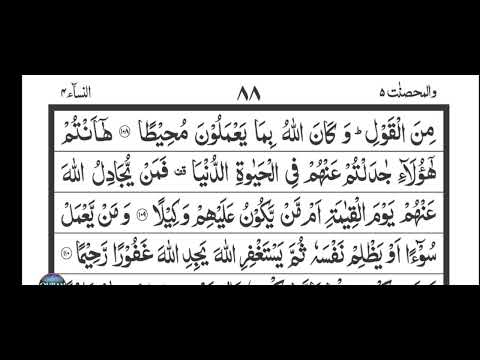 والمحصنٰت ۵ ۸۸ النسآء ۴
مِنَ الْقَوْلِ ؕ وَ كَانَ اللّٰهُ بِمَا يَعْمَلُوْنَ مُحِيْطًا ۝۱۰۸ هٰۤاَنْتُمْ
هٰۤؤُلَآءِ جٰدَلْتُمْ عَنْهُمْ فِي الْحَيٰوةِ الدُّنْيَا ۫ فَمَنْ يُّجَادِلُ اللّٰهَ
عَنْهُمْ يَوْمَ الْقِيٰمَةِ اَمْ مَّنْ يَّكُوْنُ عَلَيْهِمْ وَكِيْلًا ۝۱۰۹ وَ مَنْ يَّعْمَلْ
سُوْٓءًا اَوْ يَظْلِمْ نَفْسَهٗ ثُمَّ يَسْتَغْفِرِ اللّٰهَ يَجِدِ اللّٰهَ غَفُوْرًا رَّحِيْمًا ۝۱۱۰